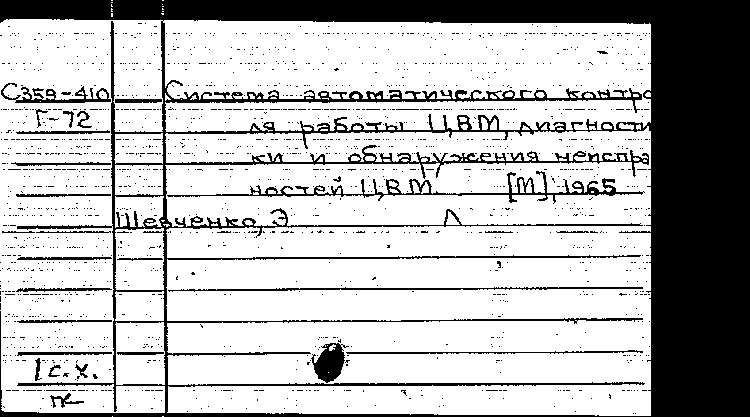 С359-410 Система автоматического контро
Г-72 ля работы ЦВМ, диагности
ки и обнаружения неиспра
ностей ЦВМ. [М], 1965
Шевченко, Э Л
1 с.х.